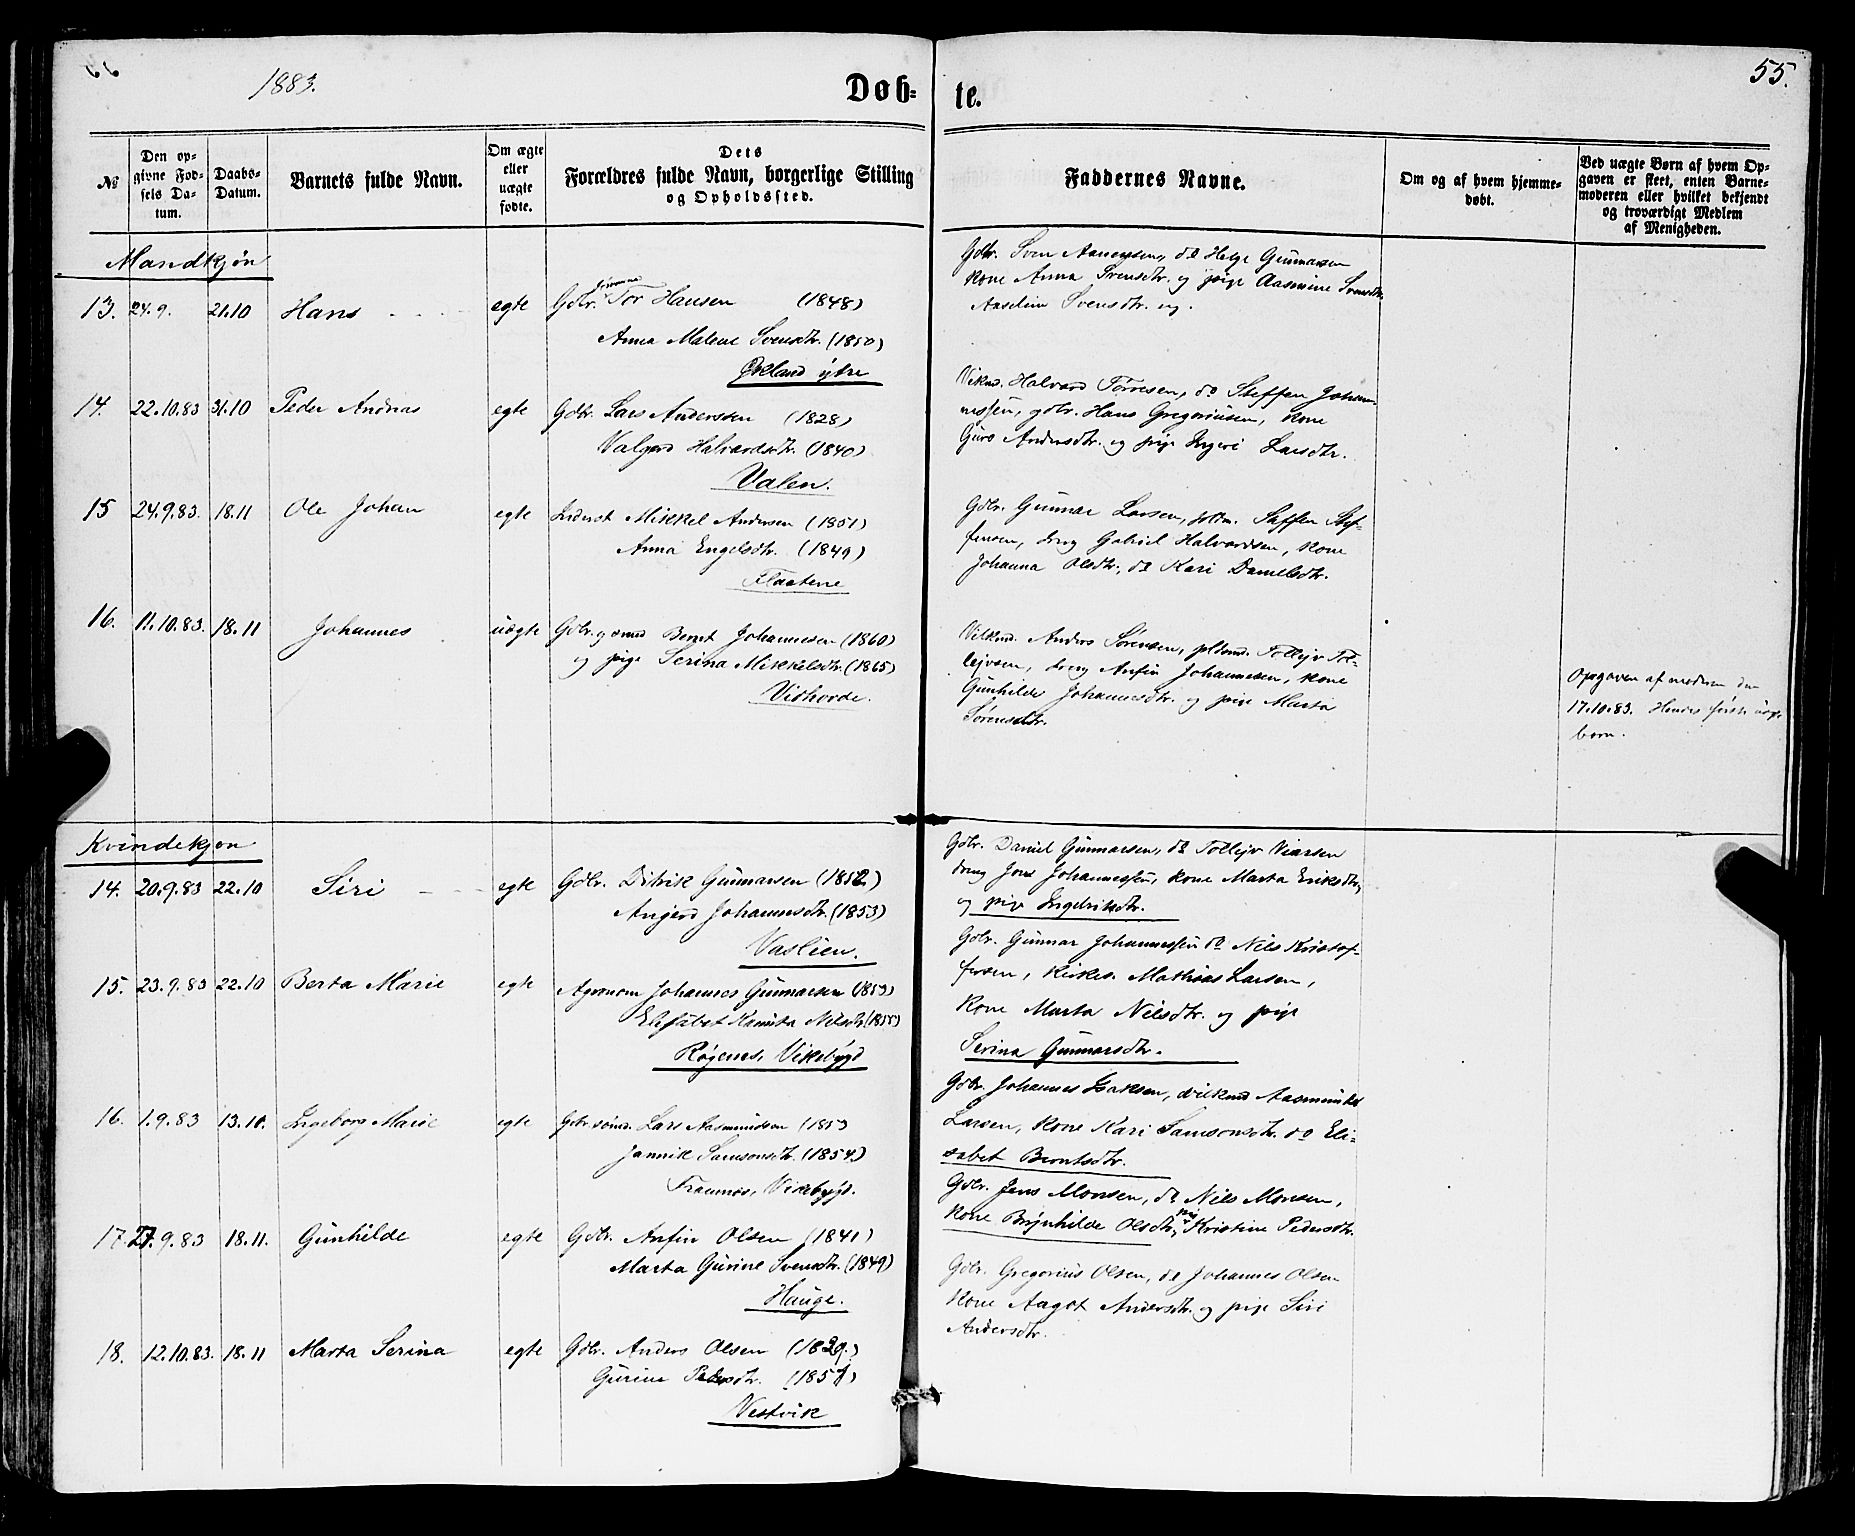 1883.
Døb-
te.
55.
№
Den op-
givne Fød-
sels Da-
tum.
Daabs-
Datum.
Barnets fulde Navn.
Om ægte
eller
uægte
fødte.
Dets
Forældres fulde Navn, borgerlige Stilling
og Opholdssted.
Faddernes Navne.
Om og af hvem hjemme-
døbt.
Ved uægte Børn af hvem Op-
gaven er skeet, enten Barne-
moderen eller hvilket bekjendt
og troværdigt Medlem
af Menigheden.
Mandkjøn
13. 24.9. 21.10 Hans egte Gdbr. Tor Hansen (1848)
Anna Malene Svensdtr. (1850)
Økland ytre
Gdbr. Sven Aanensen, do Helge Gunnarsen
kone Anna Svensdtr. og pige Aasmine Svensdtr.
Aaseline Svensdtr. og.
14. 22.10.83 31.10 Peder Andreas egte Gdbr. Lars Anderssen (1828)
Valgerd Halvardsdtr. (1840)
Valen.
Vikmd. Halvard Tørresen, do Steffen Johan-
nessen, gdbr. Hans Gregoriusen, kone
Guro Andersdtr. og pige Ingeri Larsdtr.
15 24.9.83. 18.11 Ole Johan egte Inderst Mikkel Andersen (1851)
Anna Engelsdtr. (1849)
Flaatene
Gdbr. Gunnar Larsen, Steffen Stef-
fensen, dreng Gabriel Halvardsen, kone
Johanna Olsdtr., do Kari Danielsdtr.
16. 11.10.83. 18.11 Johannes uægte Gdbr. og smed Bernt Johannesen (1860)
og pige Serina Mikkelsdtr. (1865)
Vihovde.
Vilkmd. Anders Sørensen, pldsmd. Tollejv Tol-
lejvsen, dreng Anfin Johannesen, kone
Gunhilde Johannesdtr. og pige Marta
Sørensdtr.
Opgaven af moderen den
17.10.83. Hendes første uægte
barn.
Kvindekjøn
14. 20.9.83 22.10 Siri egte Gdbr. Ditrik Gunnarsen (1852)
Angerd Johannesdtr. (1853)
Vaslien.
Gdbr. Daniel Gunnarsen, do Tollejv Viarsen
dreng Jens Johannessen, kone Marta Eriksdtr.,
og pige Ingebriksdtr.
15. 23.9.83 22.10 Berta Marie egte Agronom Johannes Gunnarsen (1853)
Elisabet Kamita Nilsdtr. (1855)
Røgenes, Vikebygd
Gdbr. Gunnar Johannessen do Nils Kristof-
fersen, kirkes. Mathias Larsen,
kone Marta Nilsdtr. og pige
Serina Gunnarsdtr.
16. 1.9.83 13.10. Ingeborg Marie egte Gdbr. sømd. Lars Aasmundsen (1853
Jannik Samsonsdtr. (1854)
Framnes, Vikebygd.
Gdbr. Johannes Isaksen, vilkmd Aasmund
Larsen, kone Kari Samsonsdtr. do Eli-
sabet Berntsdtr.
17 27.9.83 18.11. Gunhilde egte Gdbr. Anfin Olsen (1841)
Marta Gurine Svensdtr. (1849)
Hauge.
Gdbr. Jens Monsen, do Nils Monsen,
kone Brynhilde Olsdtr., pig Kristine Pedersdtr.
18. 12.10.83. 18.11 Marta Serina egte Gdbr. Anders Olsen (1829.)
Gurine Pedersdtr. (1851)
Vestvik
Gdbr. Gregorius Olsen, do Johannes Olsen
kone Aagot Andersdtr. og pige Siri
Andersdtr.